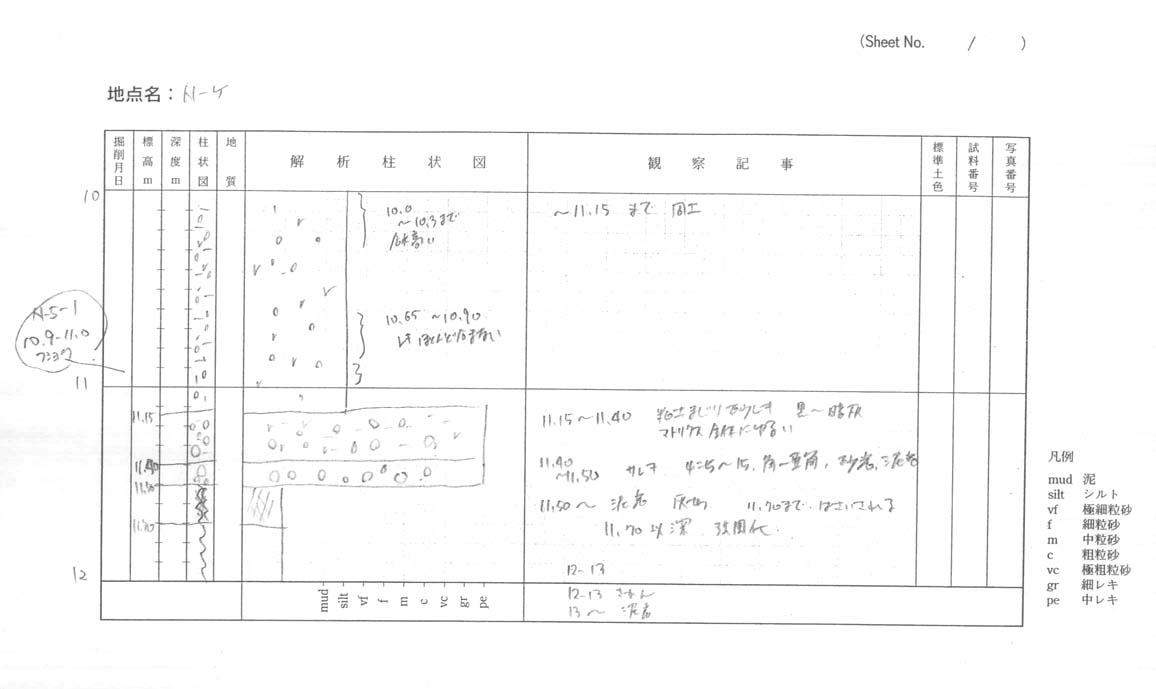 (Sheet No. / )
地点名：
掘削月日 標高m 深度m 柱状図 地質 解析柱状図 観察記事 標準土色 試料番号 写真番号
10
10.0
～10.3まで
～11.15 まで 周土
10.65 ～10.90
レキ ほとんど含まない
N-5-1
10.9-11.0
フショク
11
11.15
11.15～11.40 粘土まじり 黒～暗灰
マトリクス 全体にゆるい
11.40
11.40
～11.50 サレキ 角～亜角, 砂岩, 泥岩
11.50
11.50～ 泥岩 灰 11.70まで はさいされる
11.70
11.70 以深 強固化
12
12-13
mud silt vf f m c vc gr pe
12-13
13～ 泥岩
凡例
mud 泥
silt シルト
vf 極細粒砂
f 細粒砂
m 中粒砂
c 粗粒砂
vc 極粗粒砂
gr 細レキ
pe 中レキ